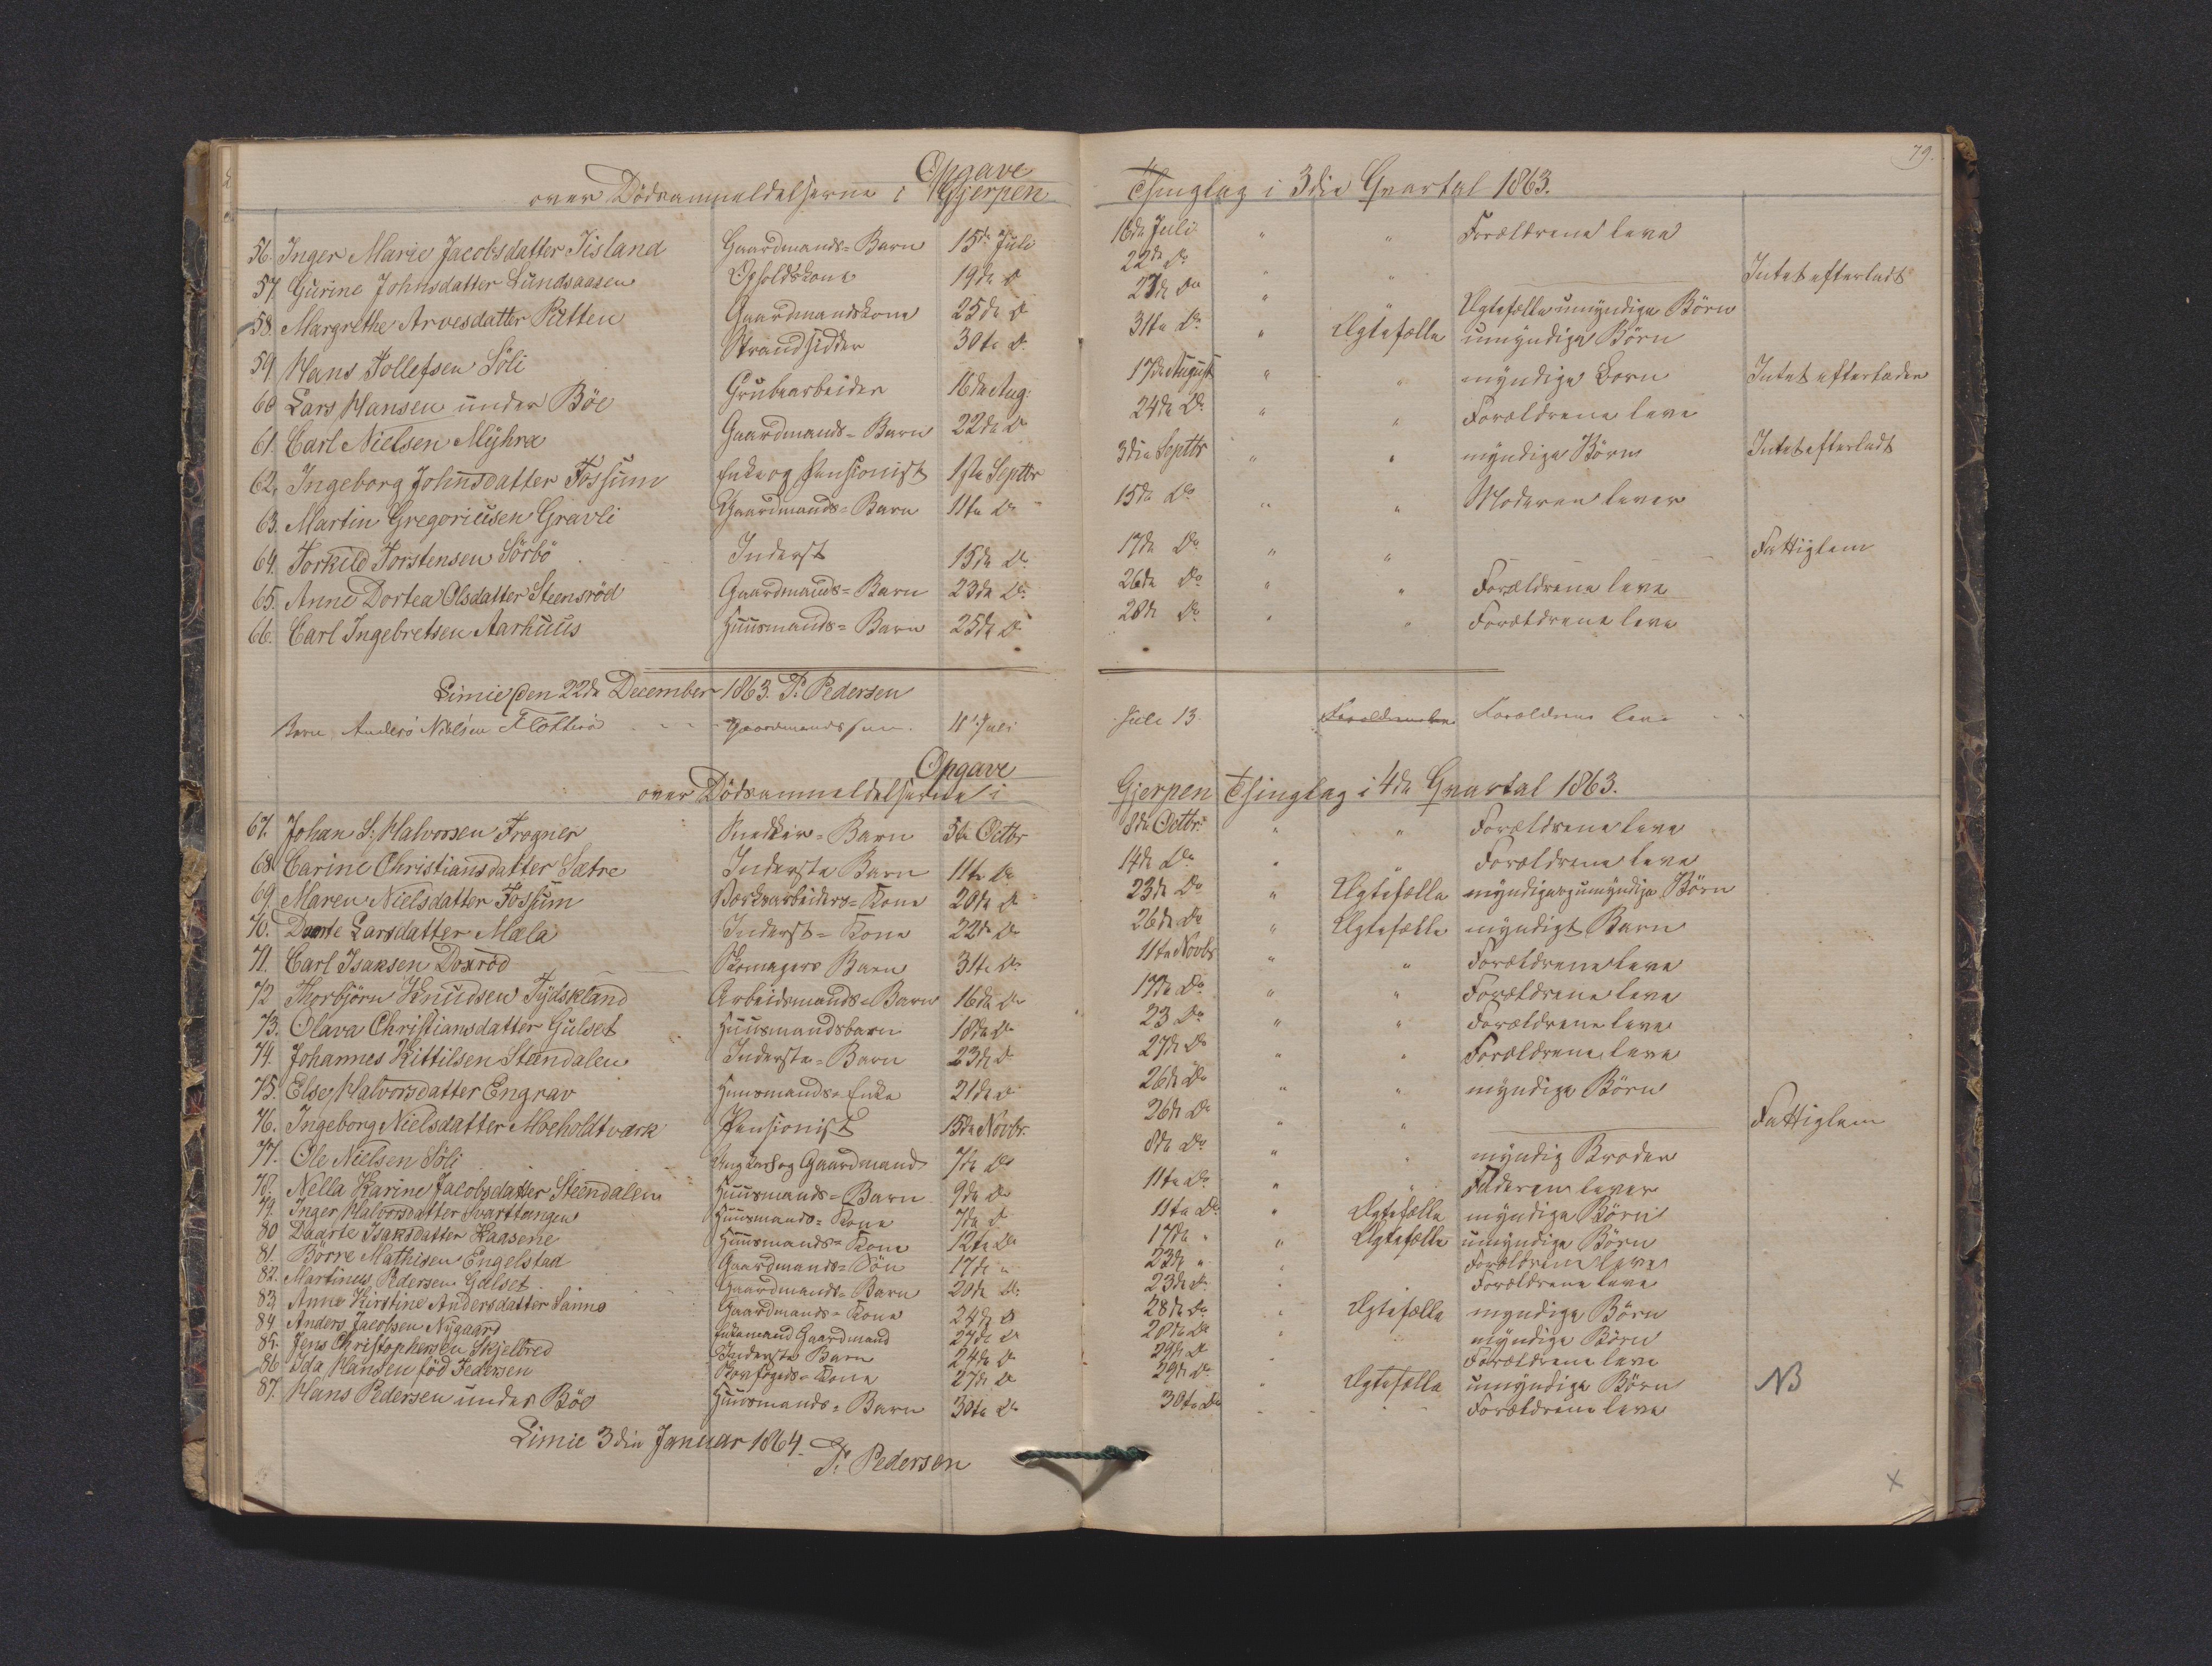 79.
Opgave
over Dödsanmeldelserne i Gjerpen Thinglag i 3die Qvartal 1863.
56. Inger Marie Jacobsdatter Iisland Gaardmands=Barn 15de Juli 18de Juli " " Forældrene leve
57. Gurine Johnsdatter Lundsaasen Opholdskone 19de Do 22de Do " " Intet efterladt
58. Margrethe Arvesdatter Ratten Gaardmandskone 25de Do 27de Do " " Ægtefælle umyndige Börn
59. Hans Tollefsen Söli Strandsidder 30te Do 31te Do " Ægtefælle umyndige Börn
60. Lars Hansen under Böe Grubearbeider 16de Aug: 17de August " " myndige Børn Intet efterlader
61. Carl Nielsen Myhra Gaardmands=Barn 22de Do 24de Do " " Forældrene leve
62. Ingeborg Johnsdatter Fossum Enke og Pensionist 1ste Septbr 3die Septbr " " myndige Börn Intet efterladt
63. Martin Gregoriusen Gravli Gaardmands=Barn 11te Do 15de Do " " Moderen lever
64. Torkild Torstensen Sörbö Inderst 15de Do 17de Do " " Fattiglem
65. Anne Dortea Olsdatter Steensröd Gaardmands=Barn 23de Do 26de Do " " Forældrene leve
66. Carl Ingebretsen Aarhuus Huusmands=Barn 25de Do 28de Do " " Forældrene leve
Limie den 22de December 1863. P. Pedersen
Barn Anders Nielsen Gaardmands 11 Juli Juli 13 Forældrene leve
Opgave
over Dödsanmeldelserne i Gjerpen Thinglag i 4de Qvartal 1863.
67. Johan S. Halvorsen Frogner Snedker=Barn 5te Octbr 8de Octbr " " Forældrene leve
68. Carine Christiansdatter Sætre Inderste Barn 11te Do 14de Do " " Forældrene leve
69. Maren Nielsdatter Fossum Værksarbeiders=Kone 20de Do 23de Do " Ægtefælle myndige og umyndige Börn
70. Dorte Larsdatter Mæla Inderst=Kone 22de Do 26de Do " Ægtefælle myndigt Barn
71. Carl Isaksen Doxröd Skomagers Barn 31te Do 11te Novbr " " Forældrene leve
72. Thorbjörn Knudsen Tydskland Arbeidsmands=Barn 16de Do 17de Do " " Forældrene leve
73. Olava Christiansdatter Gulset Huusmandsbarn 18de Do 23 Do " " Forældrene leve
74. Johannes Kittilsen Steendalen Inderste=Barn 23de Do 27de Do " " Forældrene leve
75. Else Halvorsdatter Engrav Huusmands=Enke 21de Do 26de Do " " myndige Börn
76. Ingeborg Nielsdatter Moeholdtværk Pensionist 15de Novbr. 26de Do " " Fattiglem
77. Ole Nielsen Söli Ungkarl og Gaardmand 7de Do 8de Do " " myndig Broder
78. Nella Karine Jacobsdatter Steendalen Huusmands=Barn 9de Do 11te Do " " Faderen lever
79. Inger Halvorsdatter Svarttangen Huusmands=Kone 7de Do 11te Do " Ægtefælle myndige Börn
80. Daarte Isaksdatter Kaasene Huusmands=Kone 12te Do 17de " " Ægtefælle umyndige Börn
81. Börre Mathisen Engelstad Gaardmands=Sön 17de " 23de " " Forældrene leve
82. Martinus Pedersen Gulset Gaardmands=Barn 20de Do 23de Do " Forældrene leve
83. Anne Kirstine Andersdatter Sanne Gaardmands=Kone 24de Do 28de Do " Ægtefælle myndige Börn
84. Anders Jacobsen Nygaard Enkemand Gaardmand 24de Do 28de Do " myndige Börn
85. Jens Christophersen Skjelbred Inderste Barn 24de Do 29de Do Forældrene leve
86. Ida Hansen föd Pedersen Skovfogeds=Kone 27de Do 29de Do Ægtefælle umyndige Börn NB
87. Hans Pedersen under Böe Huusmands=Barn 30te Do 30te Do Forældrene leve
Limie 3die Januar 1864.
P. Pedersen